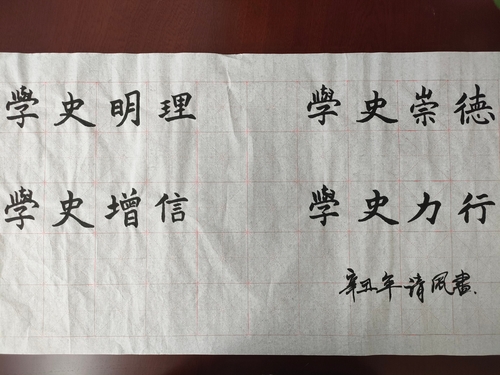 學史明理
學史增信
學史崇德
學史力行
辛丑年清风書